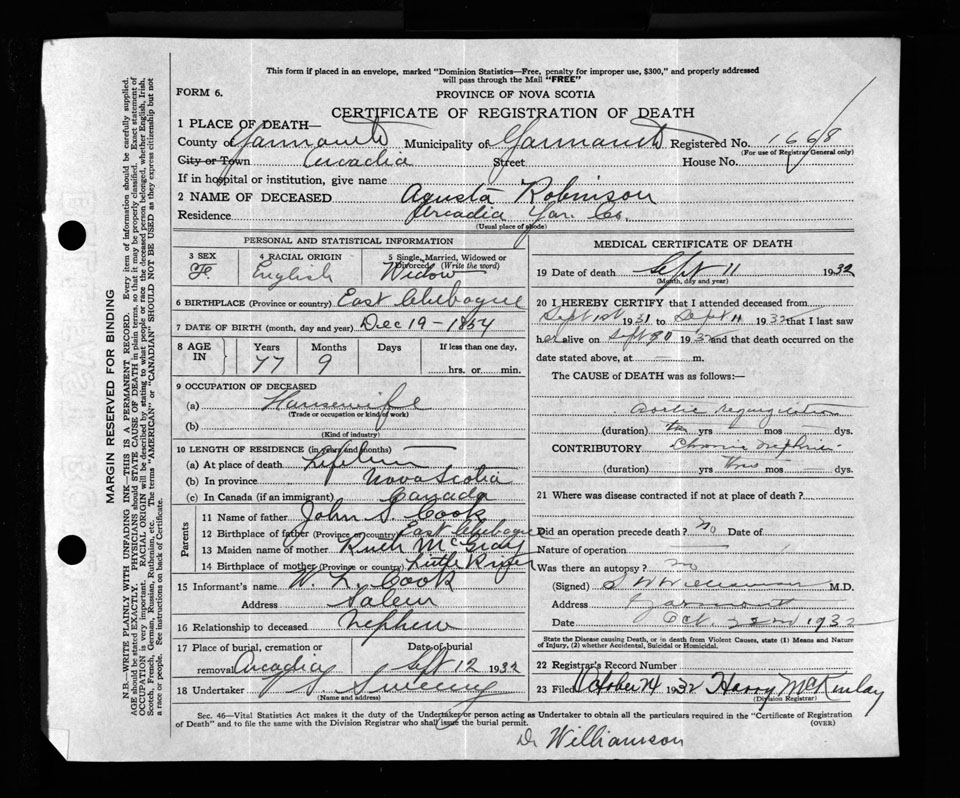 This form if placed in an envelope, marked "Dominion Statistics—Free, penalty for improper use, $300," and properly addressed
will pass through the Mail "FREE"
FORM 6.
PROVINCE OF NOVA SCOTIA
CERTIFICATE OF REGISTRATION OF DEATH
1 PLACE OF DEATH—
County of Yarmouth Municipality of Yarmouth Registered No. 1668
(For use of Registrar General only)
City or Town Arcadia Street House No.
If in hospital or institution, give name
2 NAME OF DECEASED Agusta Robinson
Residence Arcadia Yar. Co.
(Usual place of abode)
PERSONAL AND STATISTICAL INFORMATION
3 SEX 4 RACIAL ORIGIN 5 Single, Married, Widowed or
Divorced (Write the word)
F. English Widow
6 BIRTHPLACE (Province or country) East Chebogue
7 DATE OF BIRTH (month, day and year) Dec 19 - 1854
8 AGE IN Years Months Days If less than one day,
77 9 hrs. or min.
9 OCCUPATION OF DECEASED
(a) Housewife
(Trade or occupation or kind of work)
(b)
(Kind of industry)
10 LENGTH OF RESIDENCE (in years and months)
(a) At place of death Lifetime
(b) In province Nova Scotia
(c) In Canada (if an immigrant) Canada
Parents
11 Name of father John S Cook
12 Birthplace of father (Province or country) East Chebogue
13 Maiden name of mother Ruth McGray
14 Birthplace of mother (Province or country) Little River
15 Informant's name W. L. Cook
Address Salem
16 Relationship to deceased Nephew
17 Place of burial, cremation or Date of burial
removal Arcadia Sept 12 1932
18 Undertaker Sweeny
(Name and address)
MEDICAL CERTIFICATE OF DEATH
19 Date of death Sept 11 1932
(Month, day and year)
20 I HEREBY CERTIFY that I attended deceased from
Sept 1st 1931 to Sept 11 1932 that I last saw
her alive on 1932 and that death occurred on the
date stated above, at — m.
The CAUSE of DEATH was as follows:—
Aortic regurgitation
(duration) yrs mos — dys.
CONTRIBUTORY Chronic nephritis
(duration) yrs — mos — dys.
21 Where was disease contracted if not at place of death?
Did an operation precede death? No Date of
Nature of operation
Was there an autopsy? no
(Signed) S W Williamson M.D.
Address Yarmouth
Date Oct. 22nd 1932
State the Disease causing Death, or in death from Violent Causes, state (1) Means and
Nature of Injury, (2) whether Accidental, Suicidal or Homicidal.
22 Registrar's Record Number
23 Filed October 24 1932 Harry McKinlay
(Division Registrar)
Sec. 46—Vital Statistics Act makes it the duty of the Undertaker or person acting as Undertaker to obtain all the particulars required in the "Certificate of Registration
of Death" and to file the same with the Division Registrar who shall issue the burial permit. (OVER)
Dr Williamson
MARGIN RESERVED FOR BINDING
N.B.—WRITE PLAINLY WITH UNFADING INK—THIS IS A PERMANENT RECORD. Every item of information should be carefully supplied.
AGE should be stated EXACTLY. PHYSICIANS should STATE CAUSE OF DEATH in plain terms, so that it may be properly classified. Exact statement of
OCCUPATION is very important. RACIAL ORIGIN will be described by stating to what people or race the deceased person belonged, whether English, Irish,
Scotch, French, German, Russian, Ruthenian, etc. The terms "AMERICAN" or "CANADIAN" SHOULD NOT BE USED as they express citizenship but not
a race or people. See instructions on back of Certificate.